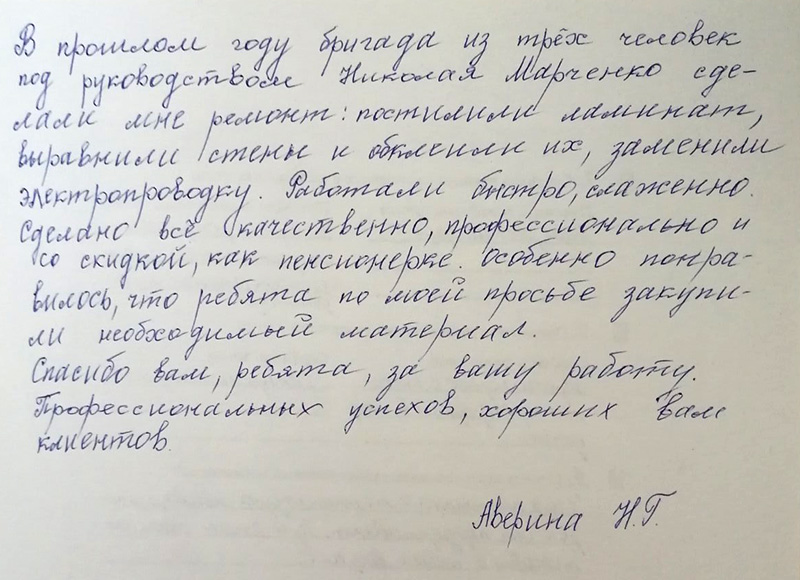 В прошлом году бригада из трёх человек
под руководством Николая Марченко сде-
лали мне ремонт: постилили ламинат,
выравнили стены и обклеили их, заменили
электропроводку. Работали быстро, слаженно.
Сделано всё качественно, профессионально и
со скидкой, как пенсионерке. Особенно понра-
вилось, что ребята по моей просьбе закупи-
ли необходимый материал.
Спасибо вам, ребята, за вашу работу.
Профессиональных успехов, хороших вам
клиентов.
Аверина Н.Г.